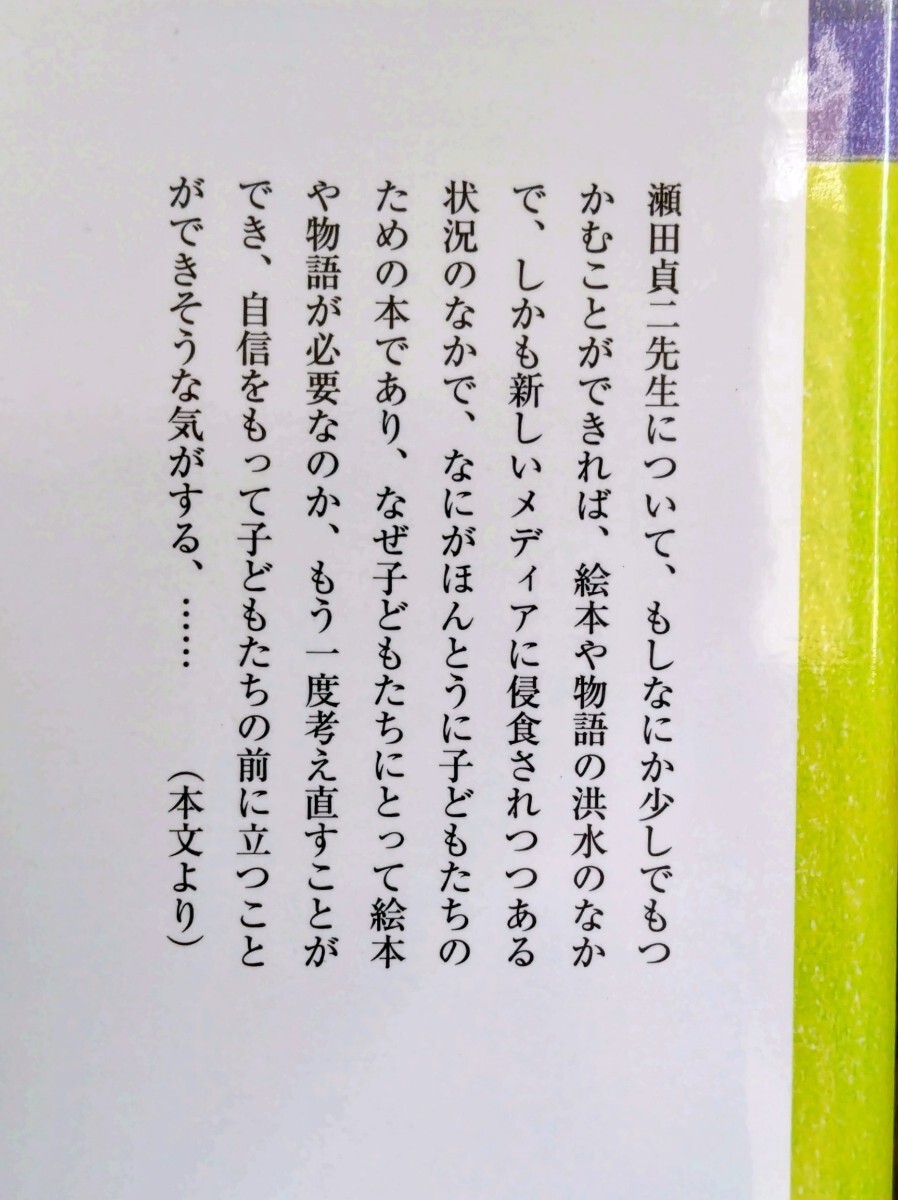 瀬田貞二先生について、もしなにか少しでもつ
かむことができれば、絵本や物語の洪水のなか
で、しかも新しいメディアに侵食されつつある
状況のなかで、なにがほんとうに子どもたちの
ための本であり、なぜ子どもたちにとって絵本
や物語が必要なのか、もう一度考え直すことが
でき、自信をもって子どもたちの前に立つこと
ができそうな気がする、……　　（本文より）